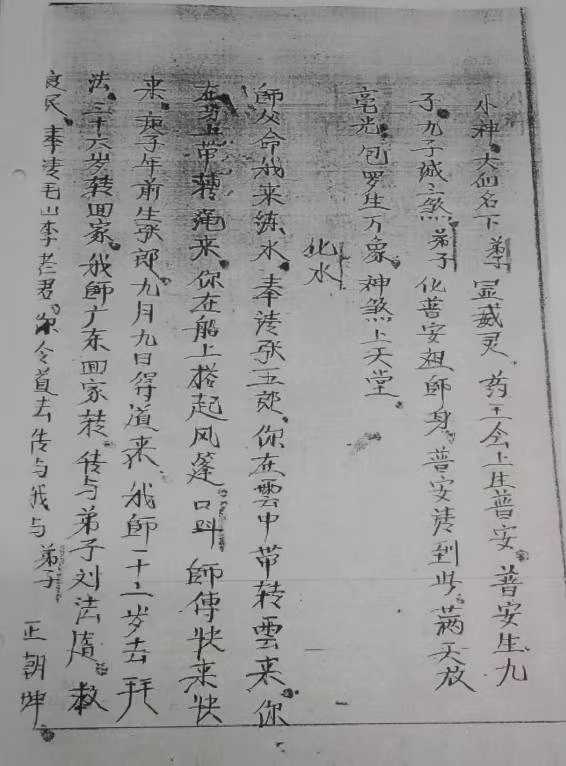 小神大仙名下弟子显威灵药王会上生普安普安生九
子九子诚之煞弟子化普安祖師身普安请到此满天放
毫光包罗生万象神煞上天堂
化水
師父命我来练水奉请张五郎你在雲中带转雲来你
在岁上带转绳来你在船上搭起风篷口叫師傅快来快
来庚子年前生张郎九月九日得道来我師一十二岁去拜
法三十六岁转回家我師广东回家转传与弟子刘法清救
良民奉请毛山李老君你令道去传与我与弟子正朝坤